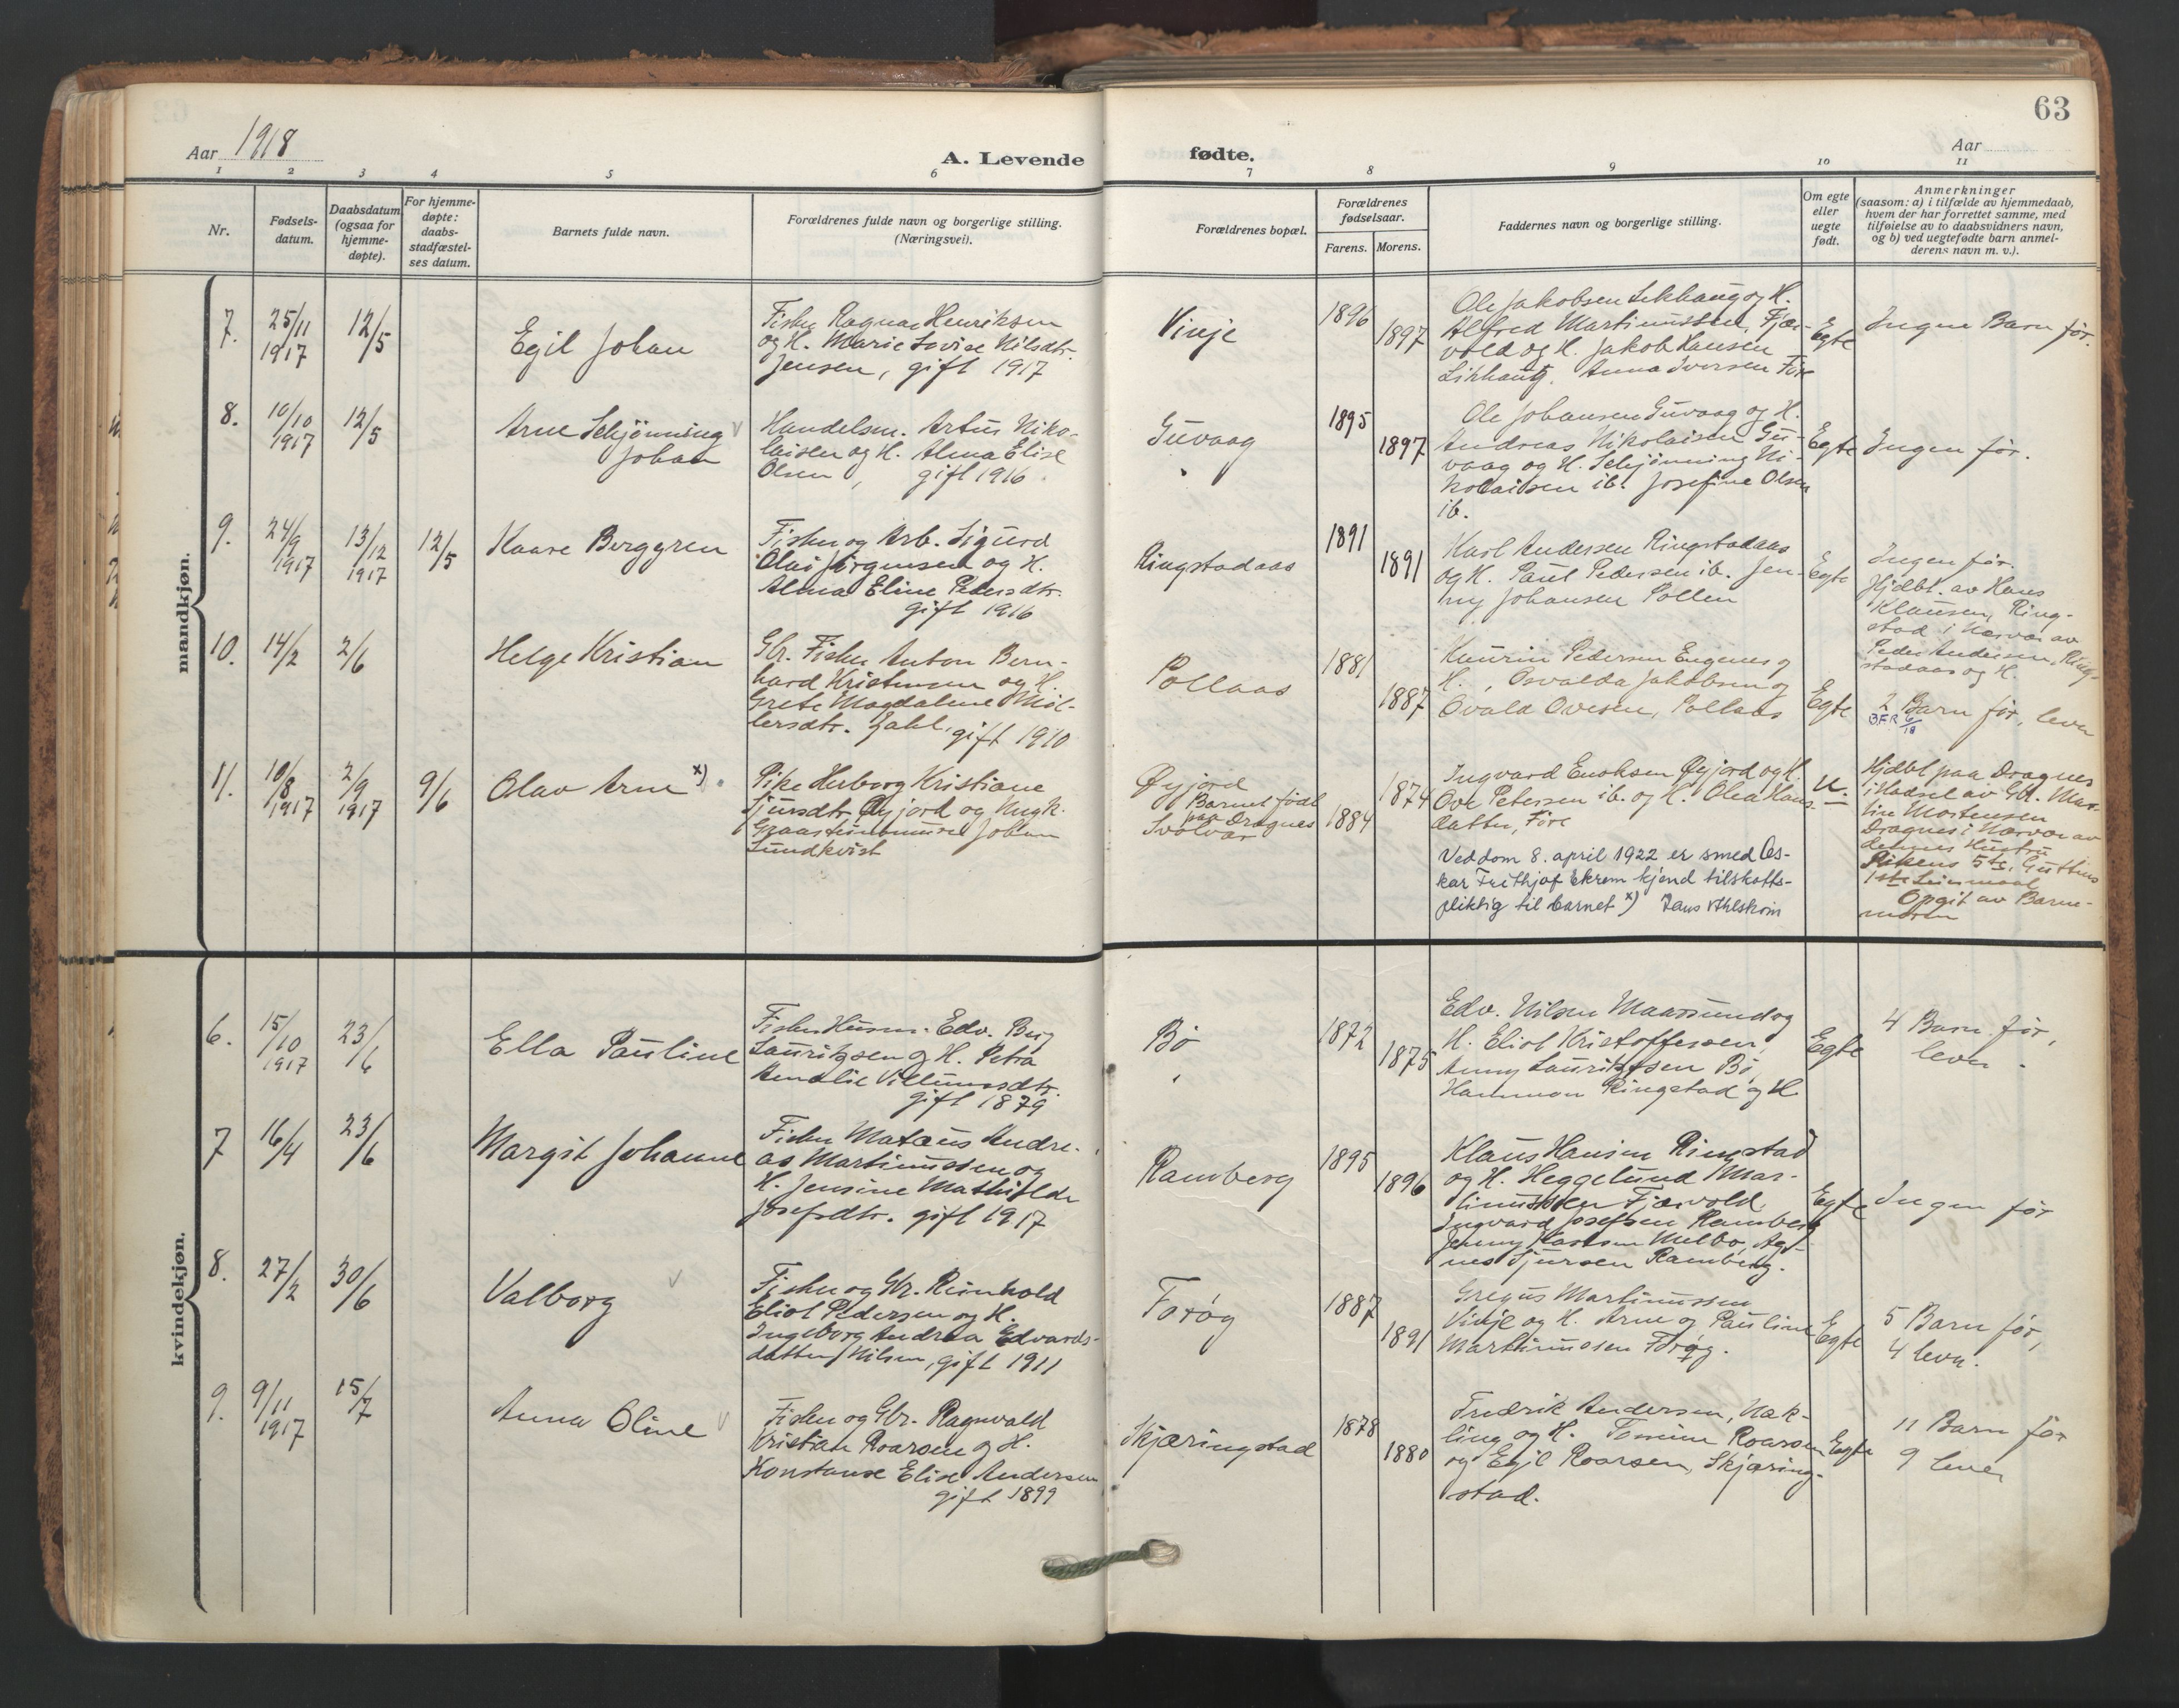 63
Aar 1918
A. Levende
fødte.
Aar
1 2 3 4 5 6 7 8 9 10 11
Nr.
Fødsels-
datum.
Daabsdatum
(ogsaa for
hjemme-
døpte).
For hjemme-
døpte:
daabs-
stadfæstel-
ses datum.
Barnets fulde navn.
Forældrenes fulde navn og borgerlige stilling.
(Næringsvei).
Forældrenes bopæl.
Forældrenes
fødselsaar.
Farens. Morens.
Faddernes navn og borgerlige stilling.
Om egte
eller
uegte
født.
Anmerkninger
(saasom: a) i tilfælde av hjemmedaab,
hvem der har forrettet samme, med
tilføielse av to daabsvidners navn,
og b) ved uegtefødte barn anmel-
derens navn m. v.).
mandkjøn.
7.
25/11
1917
12/5
Egil Johan
Fisker Ragnar Henriksen
og H. Marie Lovise Nilsdtr.
Jensen, gift 1917
Vinje
1896
1897
Ole Jakobsen Likhaug og H.
Alfred Martinussen, Fjær-
vold og H. Jakob Hansen
Likhaug. Anna Iversen Føre
Egte
Ingen Barn før.
8.
10/10
1917
12/5
Arne Schjønning
Johan
Handelsm. Artus Niko-
laisen og H. Alma Elise
Olsen, gift 1916.
Guvaag
1895
1897
Ole Johansen Guvaag og H.
Andreas Nikolaisen Gu-
vaag og H. Schjønning Ni-
kolaisen ib. Josefine Olsen
ib.
Egte
Ingen før.
9.
24/9
1917
13/12
1917
12/5
Kaare Berggren
Fisker og Arb. Sigurd
Olai Jørgensen og H.
Alma Eline Pedersdtr.
gift 1916
Ringstadaas
1891
1891
Karl Andersen Ringstadaas
og H. Paul Pedersen ib. Jen-
ny Johansen Pollen
Egte
Ingen før.
Hjdbt. av Hans
Klausen, Ring-
stad i Nærvær av
Peder Andersen, Ring-
stadaas og H.
10.
14/2
2/6
Helge Kristian
Gbr. Fisker Anton Bern-
hard Kristensen og H.
Grete Magdalene Møl-
lersdtr. Zahl, gift 1910
Pollaas
1881
1887
Kaurin Pedersen Engenes og
H., Osvalda Jakobsen og
Ovald Ovesen, Pollaas
Egte
2 Barn før, lever
11.
10/8
1917
2/9
1917
9/6
Olav Arne x)
Pike Herborg Kristiane
Sjursdtr. Øyjord og Ungk.
Graasteinsmurer Johan
Sundkvist
Øyjord
Barnet født
paa Dragnes
Svolvær
1874
1884
Ingvard Enoksen Øyjord og H.
Ove Petersen ib. og H. Olea Hans-
datter, Føre
Ved dom 8. april 1922 er smed Os-
kar Frithjof Ekrem kjend tilskotts-
pliktig til barnet x) Jens Ahlstrøm
U.
Hjdbt paa Dragnes
i Hadsel av Gbr. Mar-
tin Mortensen
Dragnes i Nærvær av
dennes Hustru
Pikens 5te, Guttens
1ste Leiermaal
Opgit av Barne-
moren
kvindekjøn.
6.
15/10
1917
23/6
Ella Pauline
Fisker Husm. Edv. Berg
Lauritssen og H. Petra
Amalie Villumsdtr.
gift 1879
Bø
1872
1875
Edv. Nilsen Maarsund og
H. Eliot Kristoffersen,
Anny Lauritssen Bø,
Hammon Ringstad og H
Egte
4 Barn før,
lever.
7
16/4
23/6
Margit Johanne
Fisker Matæus Andre-
as Martinussen og
H. Jensine Mathilde
Josefsdtr. gift 1917
Ramberg
1895
1896
Klaus Hansen Ringstad
og H. Heggelund Mar-
tinussen Fjærvold,
Ingvard Josefsen Ramberg
Jenny Melbo, Ag-
nes Sjursen Ramberg.
Egte
Ingen før
8.
27/2
30/6
Valborg
Fisker og Gbr. Reinhold
Eliot Pedersen og H.
Ingeborg Andrea Edvards-
datter Nilsen, gift 1911
Forøg
1887
1891
Gregus Martinussen
Vinje og H. Arne og Pauline
Martinussen Forøg.
Egte
5 Barn før,
4 lever.
9.
9/11
1917
15/7
Anna Oline
Fisker og Gbr. Ragnvald
Kristian Roarsen og H.
Konstanse Elise Andersen
gift 1899
Skjæringstad
1878
1880
Fredrik Andersen, Nak-
ling og H. Tomine Roarsen
og Egil Roarsen, Skjæring-
stad.
Egte
11 Barn før
9 lever